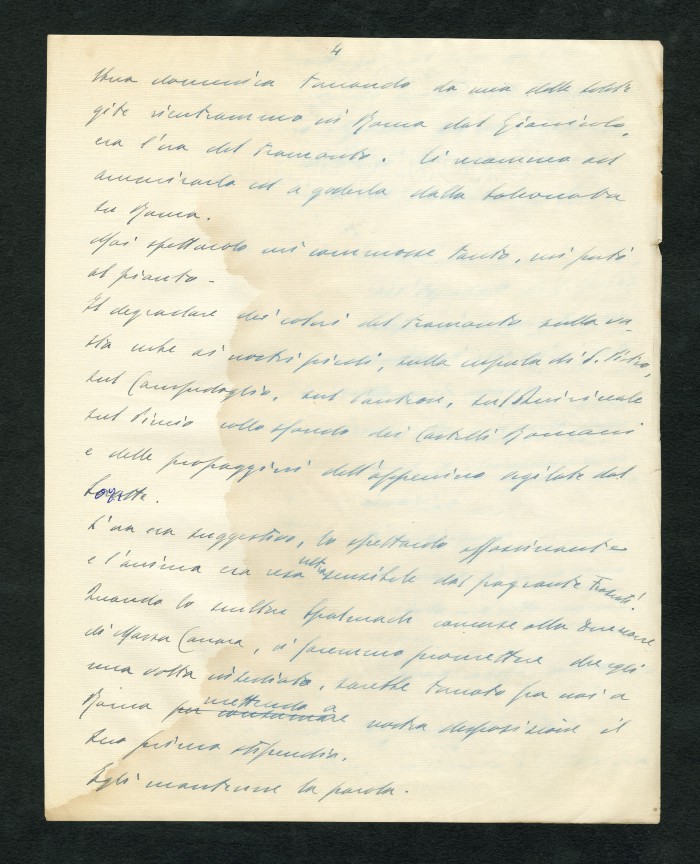 4
Una domenica tornando da una delle solite
gite rientrammo in Roma dal Gianicolo,
era l'ora del tramonto. Ci fermammo ad
ammirarla ed a goderla dalla
su Roma.
Mai spettacolo mi commosse tanto, mi portò
al pianto -
Il degradare dei colori del tramonto sulla va-
sta urbe ai nostri piedi, sulla cupola di S. Pietro,
sul Campidoglio, sul Pantheon, sul Quirinale
sul Pincio collo sfondo dei Castelli Romani
e delle propaggini dell'appennino vigilate dal
Soratte.
L'ora era suggestiva, lo spettacolo affascinante
e l'anima era resa ultrasensibile dal fragrante Frascati.
Quando lo scultore concorse alla Direzione
di Massa Carrara, ci facemmo promettere che egli
una volta insediato, sarebbe tornato fra noi a
Roma per consumare mettendo a nostra disposizione il
suo primo stipendio.
Egli mantenne la parola.